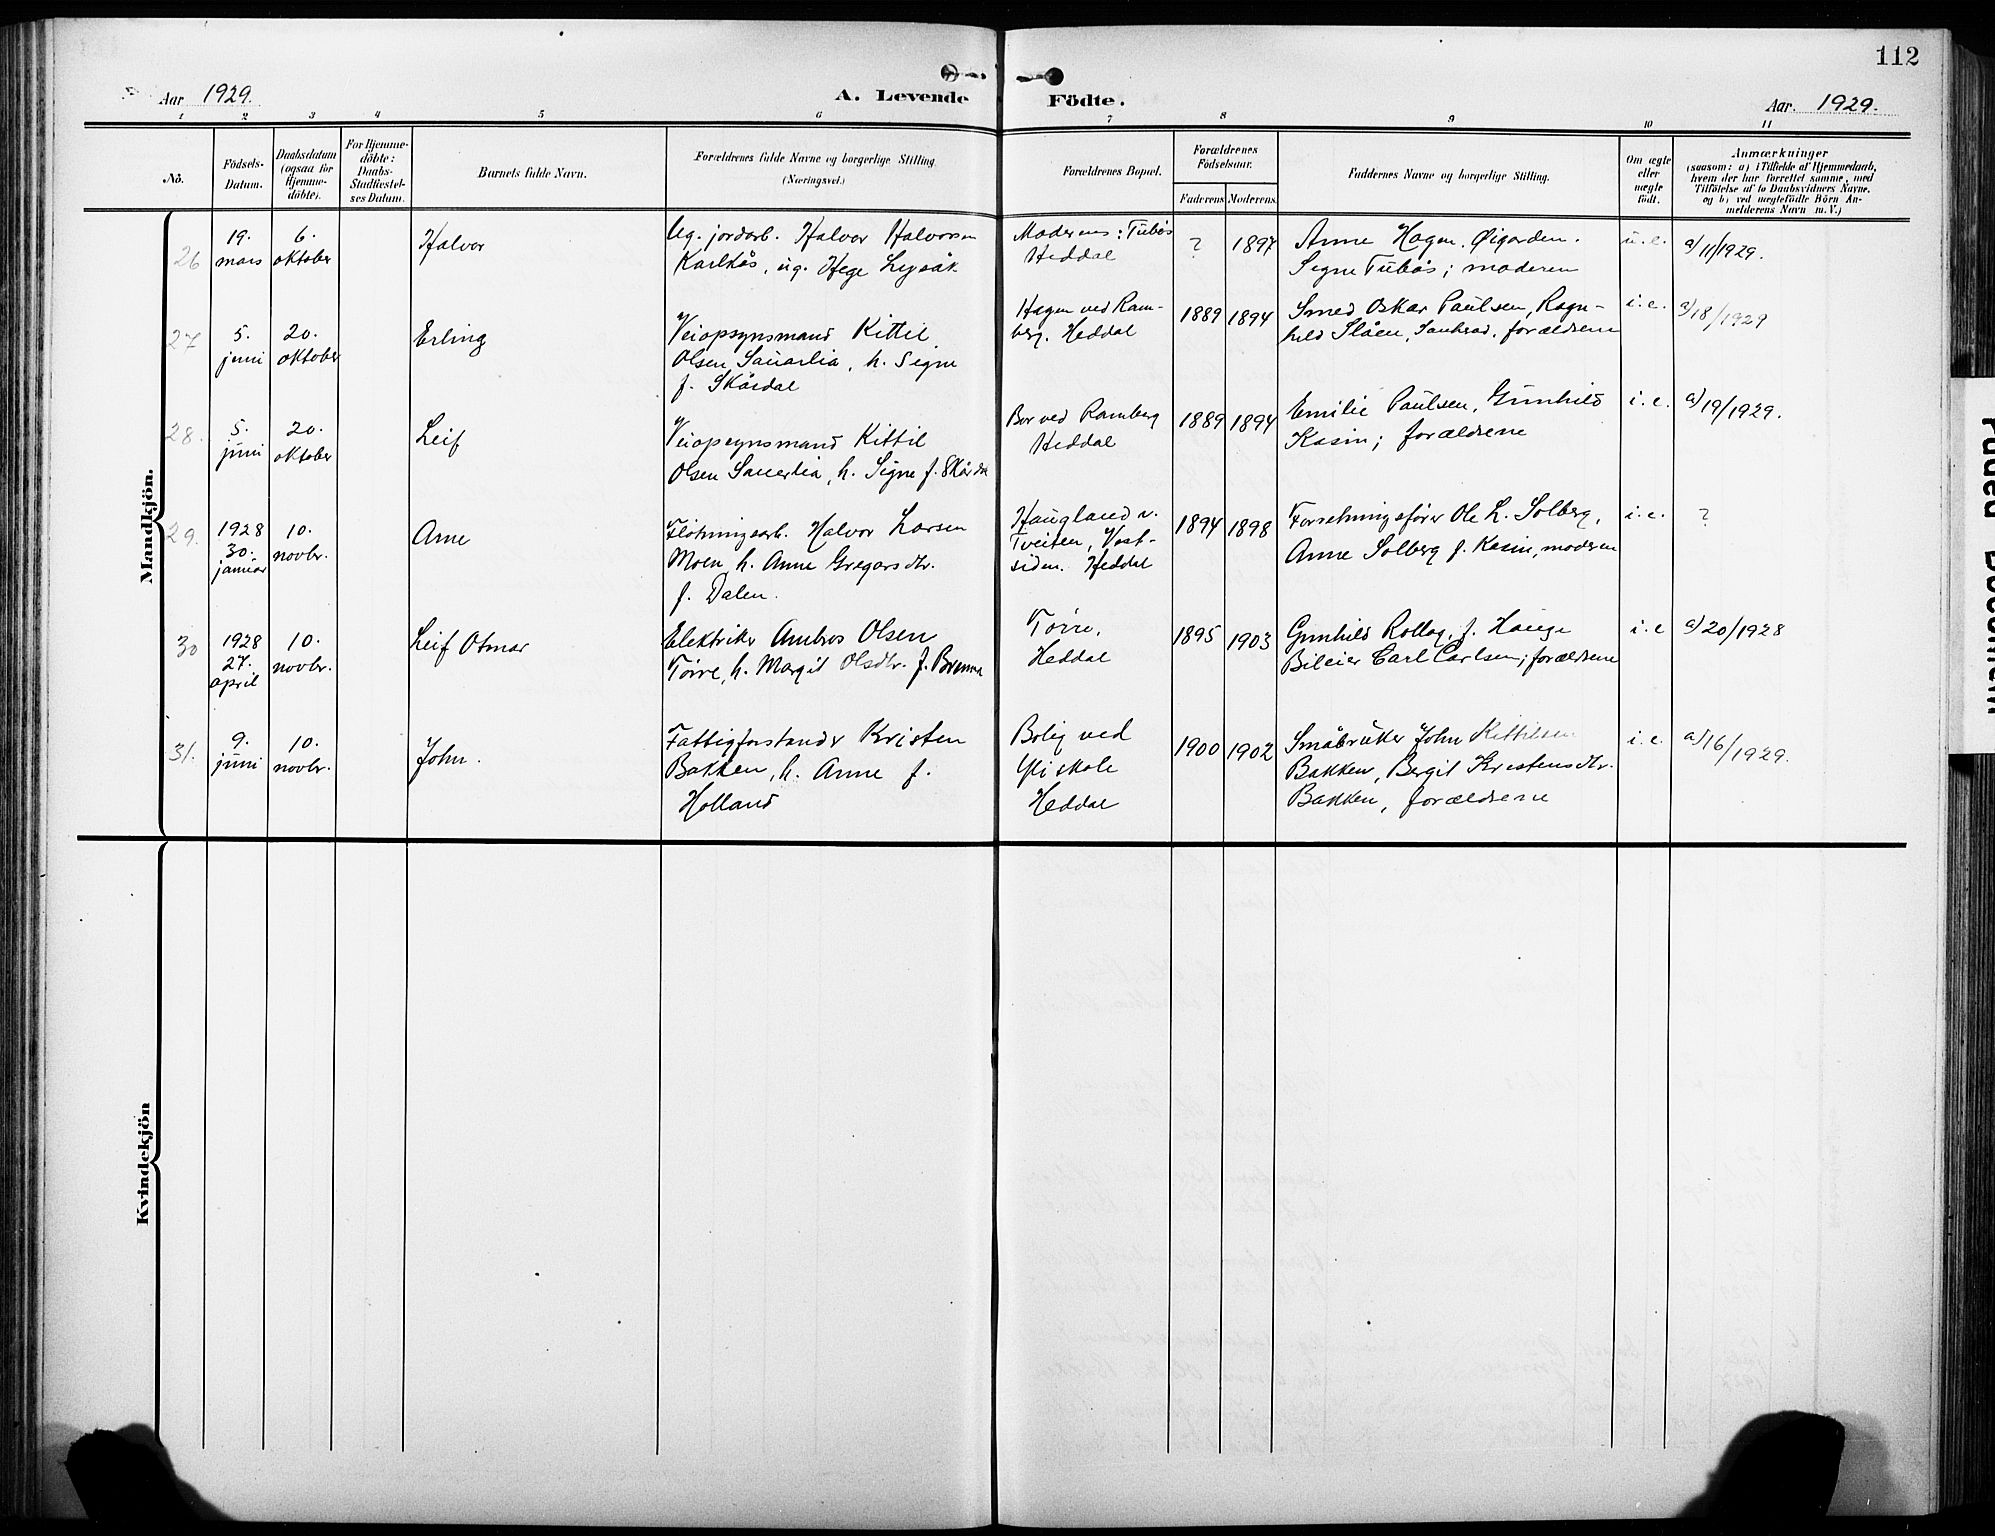 112
Aar 1929.
A. Levende Födte.
Aar. 1929.
1 2 3 4 5 6 7 8 9 10 11
No.
Födsels-
Datum.
Daabsdatum
(ogsaa for
Hjemme-
döbte).
For Hjemme-
döbte:
Daabs-
Stadfæstel-
ses Datum.
Barnets fulde Navn.
Forældrenes fulde Navne og borgerlige Stilling
(Næringsvei.)
Forældrenes Bopæl.
Forældrenes
Födselsaar.
Faderens Moderens
Faddernes Navne og borgerlige Stilling.
Om ægte
eller
uægte
född.
Anmærkninger
(saasom: a) i Tilfælde af Hjemmedaab,
hvem der har forrettet samme, med
Tilföielse af to Daabsvidners Navne.
og b) ved uægtefödte Börn An-
melderens Navn m. V.)
Mandkjön.
26
19.
mars
6.
oktober
Halvor
Ug. jordarb. Halvor Halvorsen
Karlkås, ug. Hege Lysåk
Moderens: Tubås
Heddal
?
1897
Anne Hagen, Øigarden.
Segne Tubås; moderen
u.e.
a/11/1929.
27
5.
juni
20.
oktober
Erling
Veiopsynsmand Kittil
Olsen Sauarlia, h. Signe
f. Skårdal
Hagen ved Ram-
berg. Heddal
1889
1894
Smed Oskar Paulsen, Ragn-
hild Slåen, Sauherad, forældrene
i.e.
a/18/1929
28.
5.
juni
20.
oktober
Leif
Veiopsynsmand Kittil
Olsen Sauerlia, h. Signe f. Skårdal
Bor ved Ramberg
Heddal
1889
1894
Emilie Paulsen, Gunhild
Kasin; forældrene
i.e.
a/19/1929.
29.
1928
30.
januar
10.
novbr.
Arne
Flötningsarb. Halvor Larsen
Moen, h. Anne Gregarsdtr.
f. Dalen.
Haugland v.
Tveiten, Vest-
siden. Heddal
1894
1898
Forretningsfører Ole L. Solberg,
Anne Solberg f. Kasin, moderen
i.e.
?
30
1928
27.
april
10.
novbr.
Leif Otmar
Elektriker Ambros Olsen
Tørre, h. Margit Olsdtr. f.
Tørre,
Heddal
1895
1903
Gunhild Rollag, f. Hauge
Bileier Carl Carlsen; forældrene
i.e
a/20/1928
31.
9.
juni
10.
novbr.
John.
Fattigforstander Kristen
Bakken, h. Anne f.
Holland
Bolig ved
Yli skole
Heddal
1900
1902
Småbruker John Kittilsen
Bakken, Bergit Kristensdtr.
Bakken, forældrene
i.e.
a/16/1929.
Kvindekjön